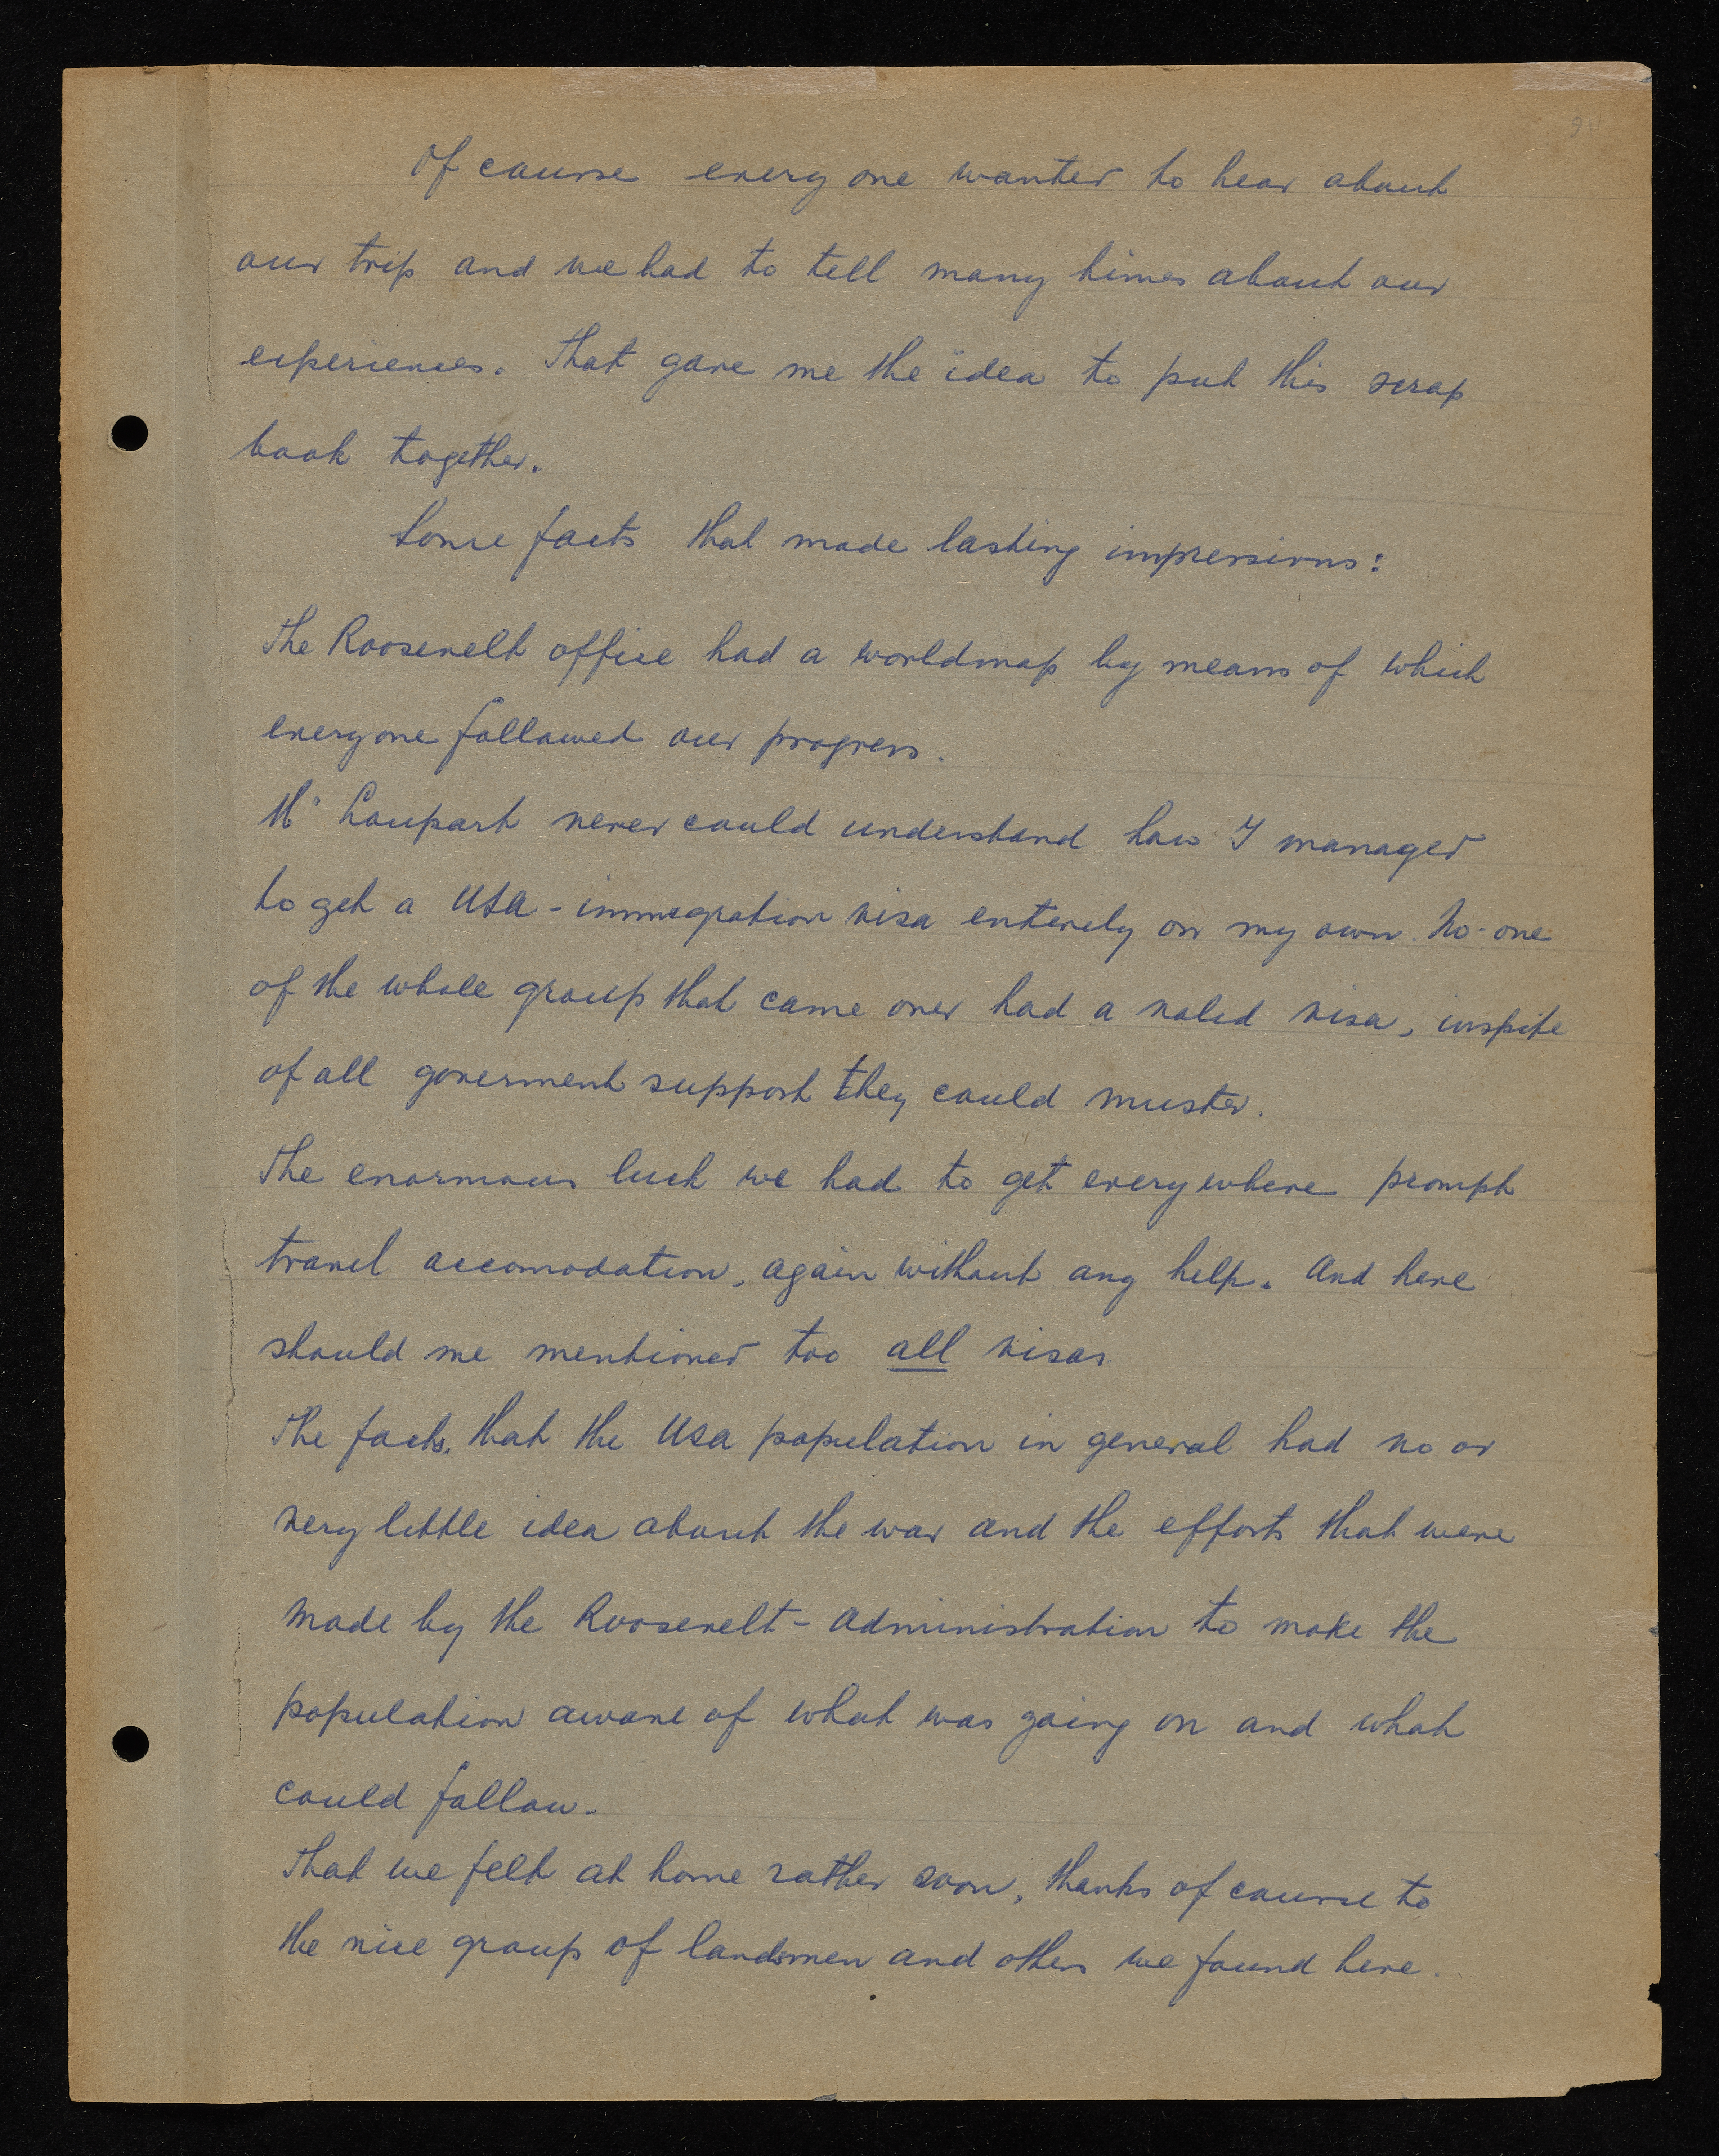 Of course every one wanted to hear about
our trip and we had to tell many times about our
experiences. That gave me the idea to put this scrap
book together.
Some facts that made lasting impressions:
The Roosevelt office had a worldmap by means of which
everyone followed our progress.
Mr Loupart never could understand how I managed
to get a USA - immegration visa enterely on my own. No-one
of the whole group that came over had a valid visa, inspite
of all goverment support they could muster.
The enormous luck we had to get everywhere prompt
travel accomodation, again without any help. And here
should me mentioned too all visas
The facts, that the USA population in general had no or
very little idea about the war and the efforts that were
made by the Roosevelt - Administration to make the
population aware of what was going on and what
could follow.
That we felt at home rather soon, thanks of course to
the nice group of landsmen and others we found here.